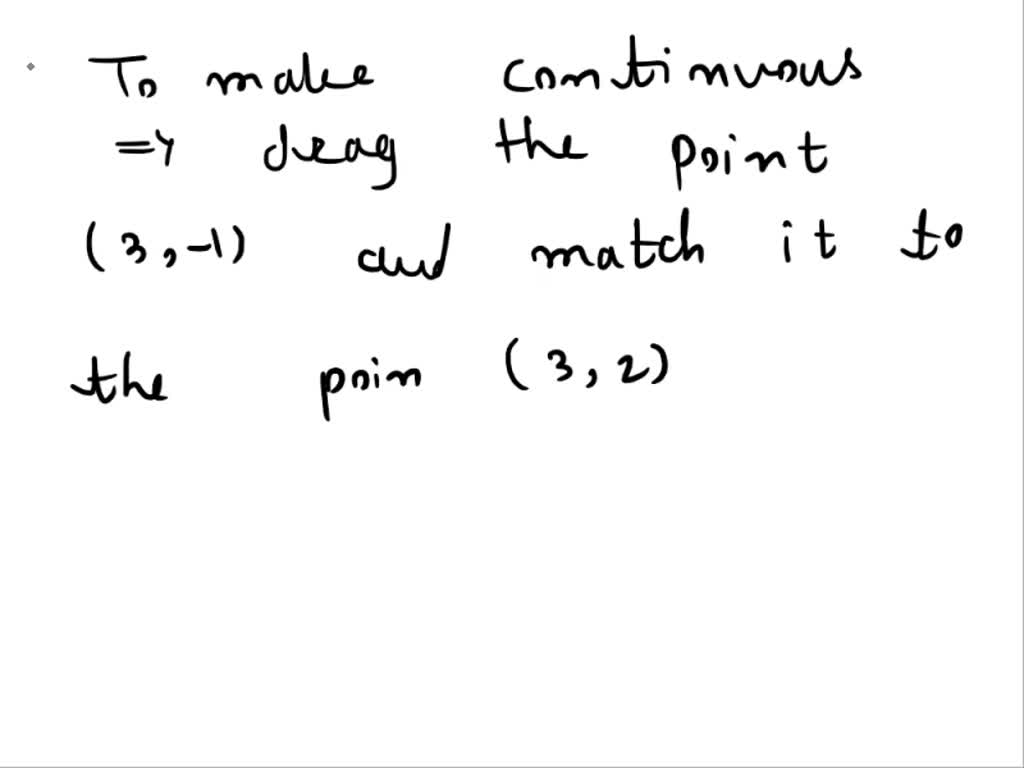 To make continuous
=> drag the point
(3,-1) and match it to
the poin (3,2)